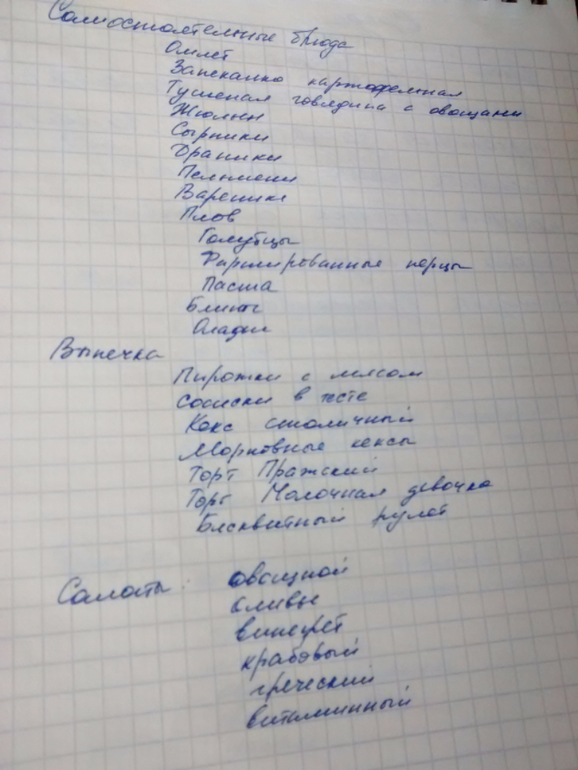 Самостоятельные блюда
Омлет
Запеканка картофельная
Тушеная говядина с овощами
Жюльен
Сырники
Драники
Пельмени
Вареники
Плов
Голубцы
Фаршированные перцы
Паста
Блины
Оладьи
Выпечка
Пирожки с мясом
Сосиски в тесте
Кекс столичный
Морковные кексы
Торт Пражский
Торт Молочная девочка
Бисквитный рулет
Салаты: овощной
оливье
винегрет
крабовый
греческий
витаминный